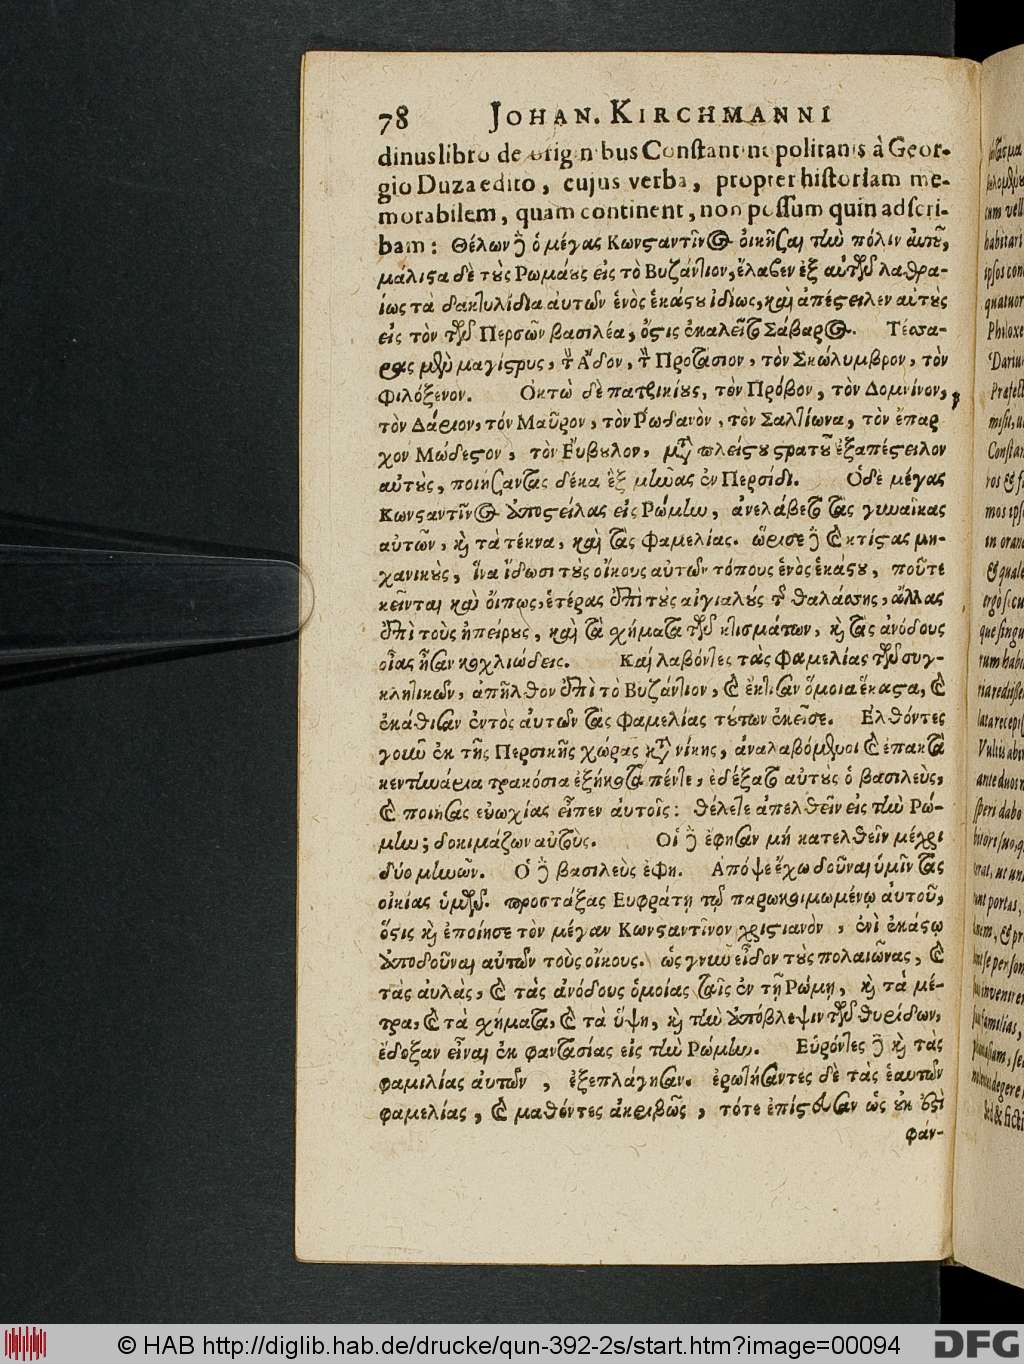 78 JOHAN. KIRCHMANNI
dinus libro de originibus Constantinopolitanis à Geor-
gio Duza edito, cujus verba, propter historiam me-
morabilem, quam continent, non possum quin adscri-
bam: Θέλων δὲ ὁ μέγας Κωνσταντῖνος οἰκῆσαι τὴν πόλιν αὐτοῦ,
μάλιστα δὲ τοὺς Ρωμαίους εἰς τὸ Βυζάντιον, ἔλαβεν ἐξ αὐτῶν λαθρα-
ίως τὰ δακτυλίδια αὐτῶν ἑνὸς ἑκάστου ἰδίως, καὶ ἀπέστειλεν αὐτοὺς
εἰς τὸν τῶν Περσῶν βασιλέα, ὅστις ἐκαλεῖτο Σάβαρος. Τέσσα-
ρας μὲν μαγίστρους, τὸν Ἄδον, τὸν Προτάσιον, τὸν Σκώλυμβρον, τὸν
Φιλόξενον. Ὀκτὼ δὲ πατρικίους, τὸν Πρόβον, τὸν Δομνίνον,
τὸν Δάριον, τόν Μαῦρον, τὸν Ῥόδανὸν, τὸν Σαλτίωνα, τὸν ἔπαρ
χον Μώδεστον, τὸν Εὔβουλον, μετὰ πλείστου στρατοῦ ἐξαπέστειλον
αὐτοὺς, ποιήσαντας δέκα ἓξ μῆνας ἐν Περσίδι. Ὁδὲ μέγας
Κωνσταντῖνος ὑποστείλας εἰς Ρώμην, ἀνελάβετο τὰς γυναῖκας
αὐτῶν, καὶ τὰ τέκνα, καὶ τὰς Φαμελίας. ὥρισε δὲ καὶ κτίστας μη-
χανικοὺς, ἵνα ἴδωσι τοὺς οἴκους αὐτῶν τόπους ἑνὸς ἑκάστου, ποῦτε
κεῖνται καὶ ὅπως, ἑτέρας ἐπὶ τοὺς αἰγιαλούς τῆς θαλάσσης, ἄλλας
ἐπὶ τοὺς ἠπείρους, καὶ τὰ σχήματα τῶν κτισμάτων, καὶ τὰς ἀνόδους
οἵας ἦσαν κοχλιώδεις. Καὶ λαβόντες τὰς Φαμελίας τῶν συγ-
κλητικῶν, ἀπῆλθον ἐπὶ τὸ Βυζάντιον, καὶ ἔκτισαν ὅμοια ἕκαστα, καὶ
ἐκάθισαν ἐντὸς αὐτῶν τὰς Φαμελίας τούτων ἐκεῖσε. Ἐλθόντες
γοῦν ἐκ τῆς Περσικῆς χώρας κατὰ νίκης, ἀναλαβόμενοι καὶ ἐπακτὰ
κεντηνάρια τρακόσια ἑξήκοντα πέντε, ἐδέξατο αὐτοὺς ὁ βασιλεὺς,
καὶ ποιήσας εὐωχίας εἶπεν αὐτοῖς: θέλετε ἀπελθεῖν εἰς τὴν Ρώ-
μην; δοκιμάζων αὐτοὺς. Οἱ δὲ ἔφησαν μή κατελθεῖν μέχρι
δύο μηνῶν. Ὁ δὲ βασιλεὺς ἔφη. Ἀπόψε ἔχω δοῦναι ὑμῖν τὰς
οἰκίας ὑμῶν. προστάξας Ευφράτῃ τῷ παρωκοιμωμένῳ αὐτοῦ,
ὅστις καὶ ἐποίησε τὸν μέγαν Κωνσταντῖνον χριστιανὸν, ἑνὶ ἑκάστῳ
ὑποδοῦναι αὐτῶν τοὺς οἴκους. ὡς γοῦν εἶδον τοὺς πολαιῶνας, καὶ
τὰς αὐλὰς, καὶ τὰς ἀνόδους ὁμοίας ταῖς ἐν τῇ Ρώμῃ, καὶ τὰ μέ-
τρα, καὶ τὰ σχήματα, καὶ τὰ ὕψη, καὶ τὴν ὑπόβλεψιν τῶν θυρίδων,
ἔδοξαν εἶναι ἐκ φαντασίας εἰς τὴν Ρώμην. Εὑρόντες δὲ καὶ τὰς
φαμιλίας αὐτῶν, ἐξεπλάγησαν. ἐρωτήσαντες δὲ τὰς ἑαυτῶν
φαμελίας, καὶ μαθόντες ἀκριβῶς, τότε ἐπίστευσαν ὡς οὐκ ἐστὶ
φάν-
© HAB http://diglib.hab.de/drucke/qun-392-2s/start.htm?image=00094
DFG